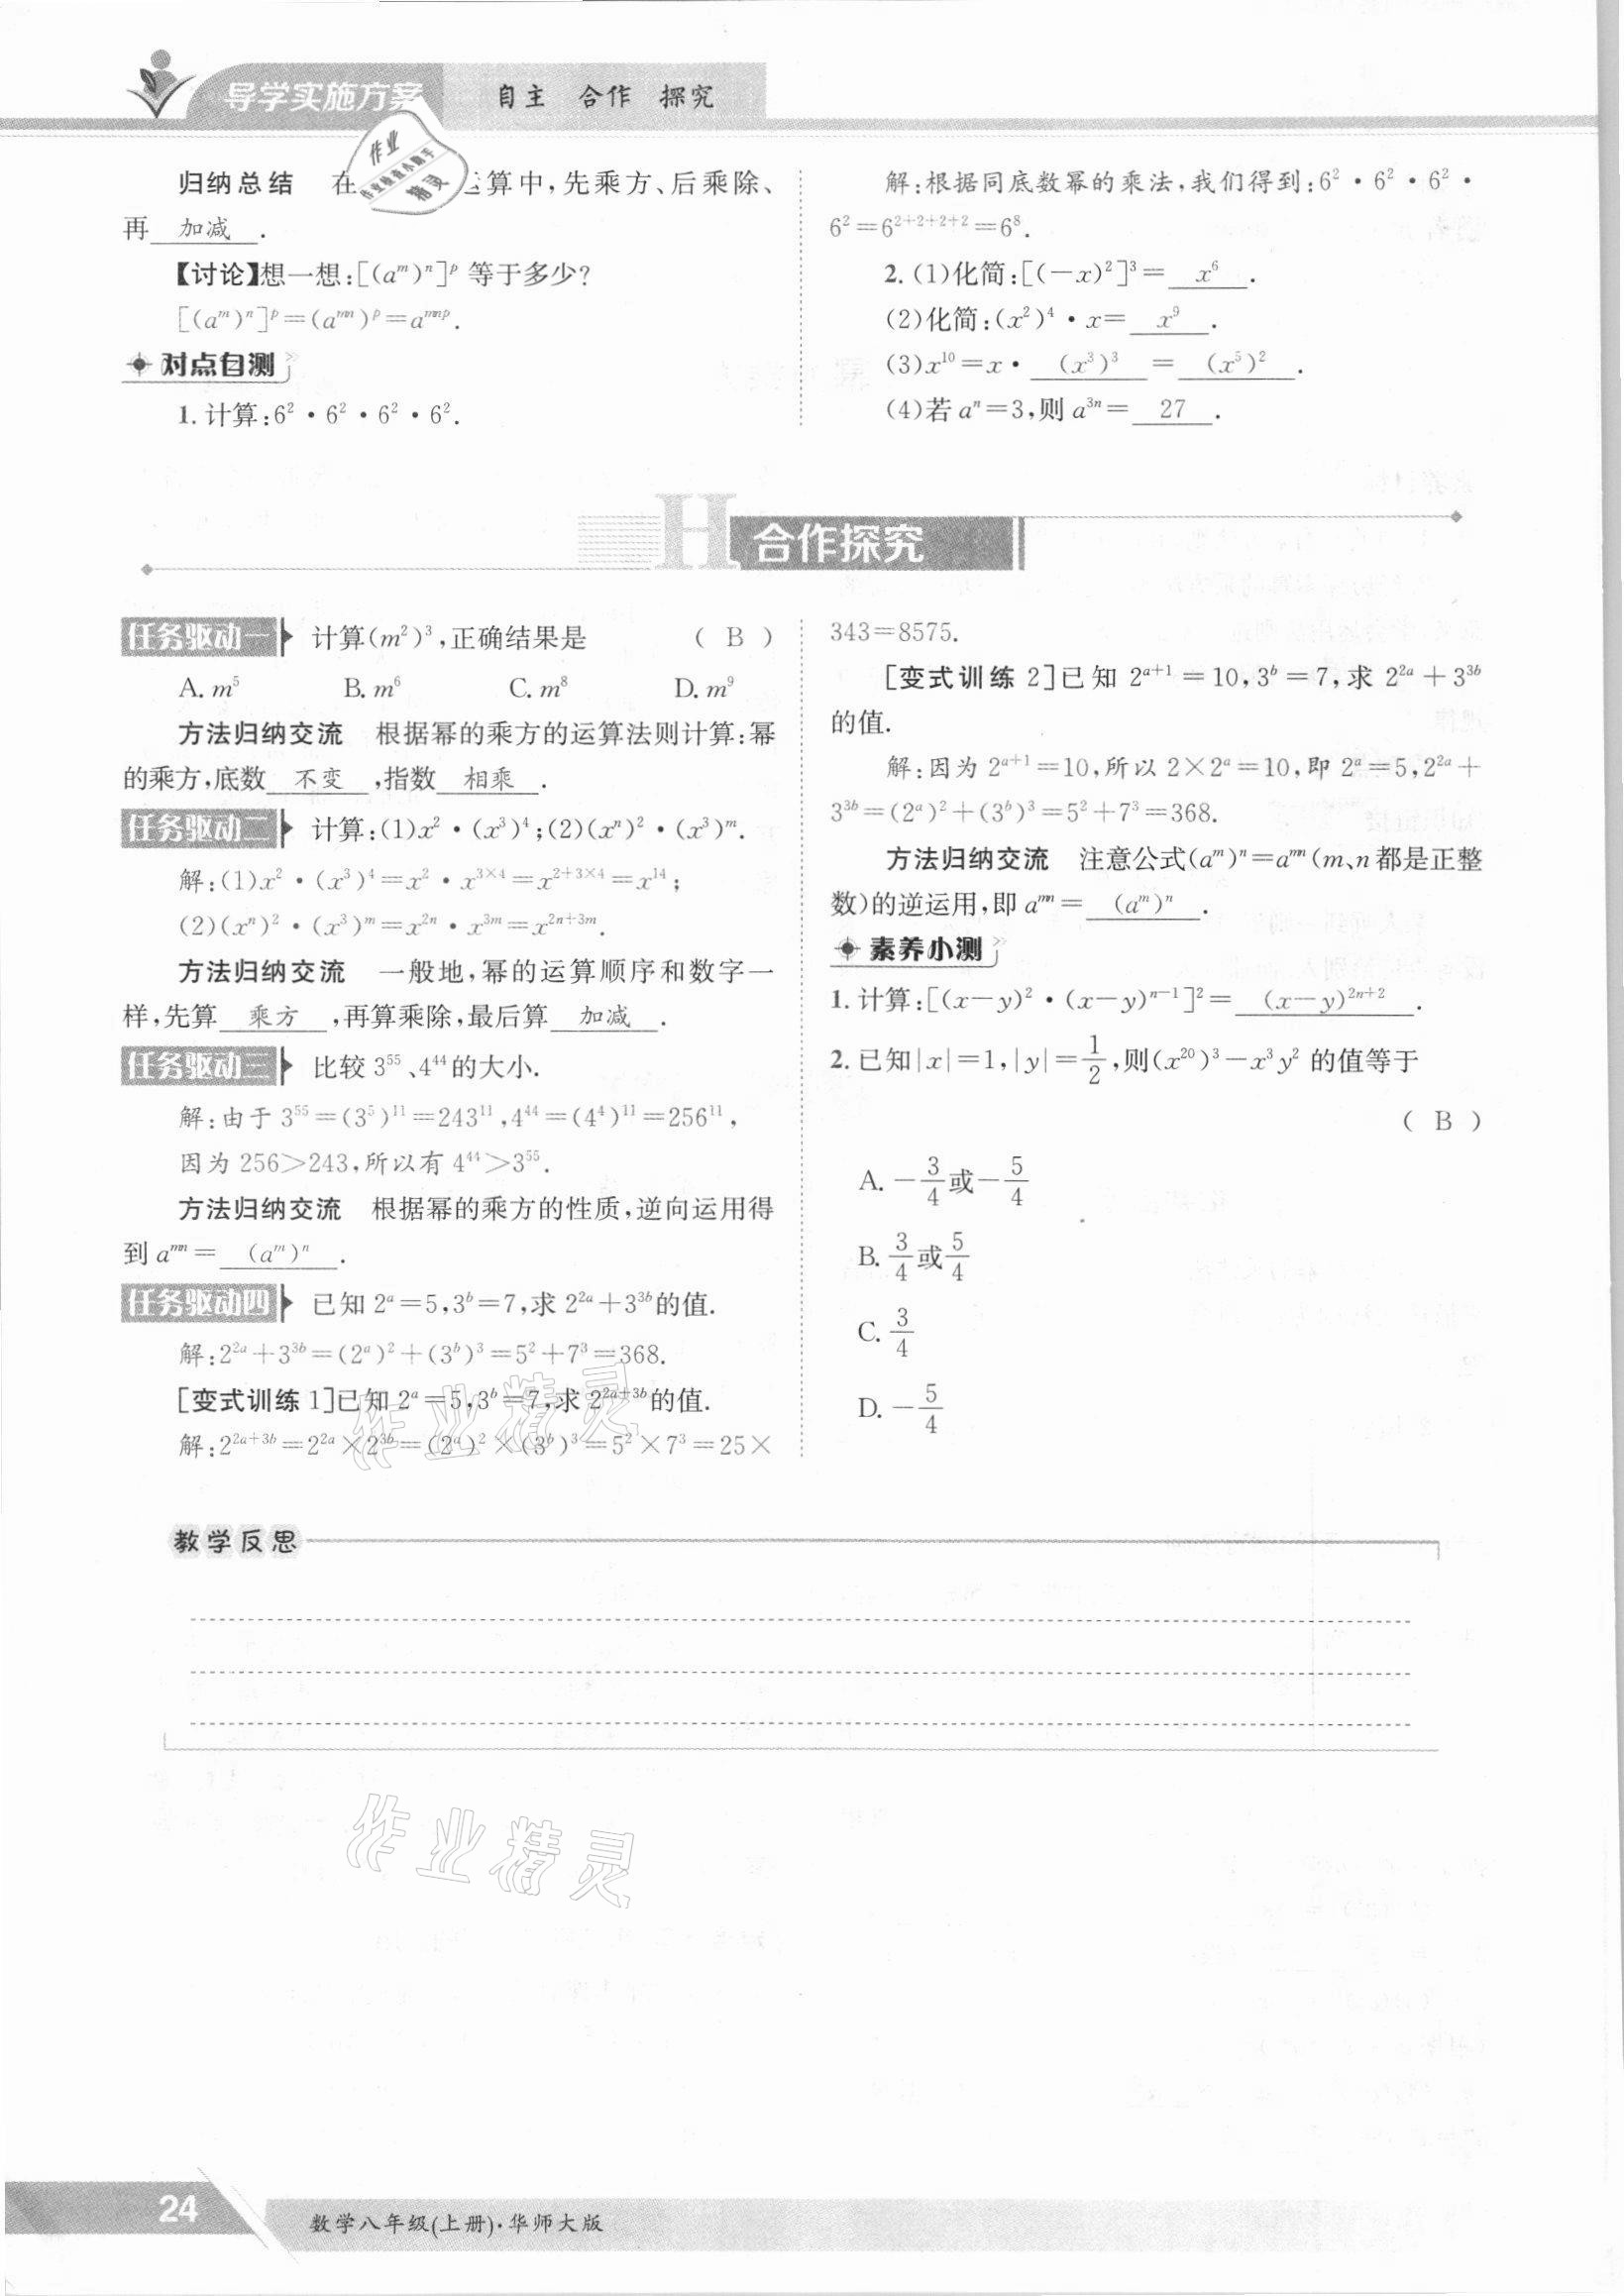 导学实施方案 自主 合作 探究
归纳总结 在 运算中,先乘方、后乘除、
再 加减 .
【讨论】想一想:[(aᵐ)ⁿ]ᵖ 等于多少?
[(aᵐ)ⁿ]ᵖ=(aᵐⁿ)ᵖ=aᵐⁿᵖ.
对点自测
1.计算:6²·6²·6²·6².
解:根据同底数幂的乘法,我们得到:6²·6²·6²·
6²=6²⁺²⁺²⁺²=6⁸.
2.(1)化简:[(-x)²]³= x⁶ .
(2)化简:(x²)⁴·x= x⁹ .
(3)x¹⁰=x· (x³)³ = (x⁵)² .
(4)若 aⁿ=3,则 a³ⁿ= 27 .
H 合作探究
任务驱动一 计算(m²)³,正确结果是 ( B )
A. m⁵ B. m⁶ C. m⁸ D. m⁹
方法归纳交流 根据幂的乘方的运算法则计算:幂
的乘方,底数 不变 ,指数 相乘 .
任务驱动二 计算:(1)x²·(x³)⁴;(2)(xⁿ)²·(x³)ᵐ.
解:(1)x²·(x³)⁴=x²·x³ˣ⁴=x²⁺³ˣ⁴=x¹⁴;
(2)(xⁿ)²·(x³)ᵐ=x²ⁿ·x³ᵐ=x²ⁿ⁺³ᵐ.
方法归纳交流 一般地,幂的运算顺序和数字一
样,先算 乘方 ,再算乘除,最后算 加减 .
任务驱动三 比较 3⁵⁵、4⁴⁴的大小.
解:由于 3⁵⁵=(3⁵)¹¹=243¹¹,4⁴⁴=(4⁴)¹¹=256¹¹,
因为 256>243,所以有 4⁴⁴>3⁵⁵.
方法归纳交流 根据幂的乘方的性质,逆向运用得
到 aᵐⁿ= (aᵐ)ⁿ .
任务驱动四 已知 2ᵃ=5,3ᵇ=7,求 2²ᵃ+3³ᵇ的值.
解:2²ᵃ+3³ᵇ=(2ᵃ)²+(3ᵇ)³=5²+7³=368.
[变式训练 1]已知 2ᵃ=5,3ᵇ=7,求 2²ᵃ⁺³ᵇ的值.
解:2²ᵃ⁺³ᵇ=2²ᵃ×2³ᵇ=(2ᵃ)²×(3ᵇ)³=5²×7³=25×
343=8575.
[变式训练 2]已知 2ᵃ⁺¹=10,3ᵇ=7,求 2²ᵃ+3³ᵇ
的值.
解:因为 2ᵃ⁺¹=10,所以 2×2ᵃ=10,即 2ᵃ=5,2²ᵃ+
3³ᵇ=(2ᵃ)²+(3ᵇ)³=5²+7³=368.
方法归纳交流 注意公式(aᵐ)ⁿ=aᵐⁿ(m、n 都是正整
数)的逆运用,即 aᵐⁿ= (aᵐ)ⁿ .
素养小测
1.计算:[(x-y)²·(x-y)ⁿ⁻¹]²= (x-y)²ⁿ⁺² .
2.已知|x|=1,|y|=1/2,则(x²⁰)³-x³y² 的值等于
( B )
A. -3/4或-5/4
B. 3/4或5/4
C. 3/4
D. -5/4
教学反思
作业精灵
24
数学八年级(上册)·华师大版